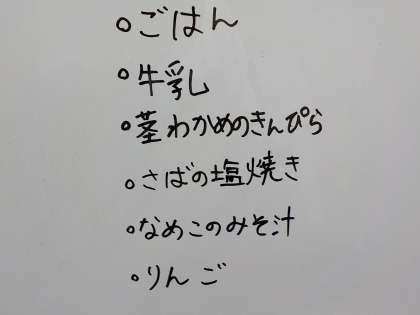 ○ごはん
○牛乳
○茎わかめのきんぴら
○さばの塩焼き
○なめこのみそ汁
○りんご